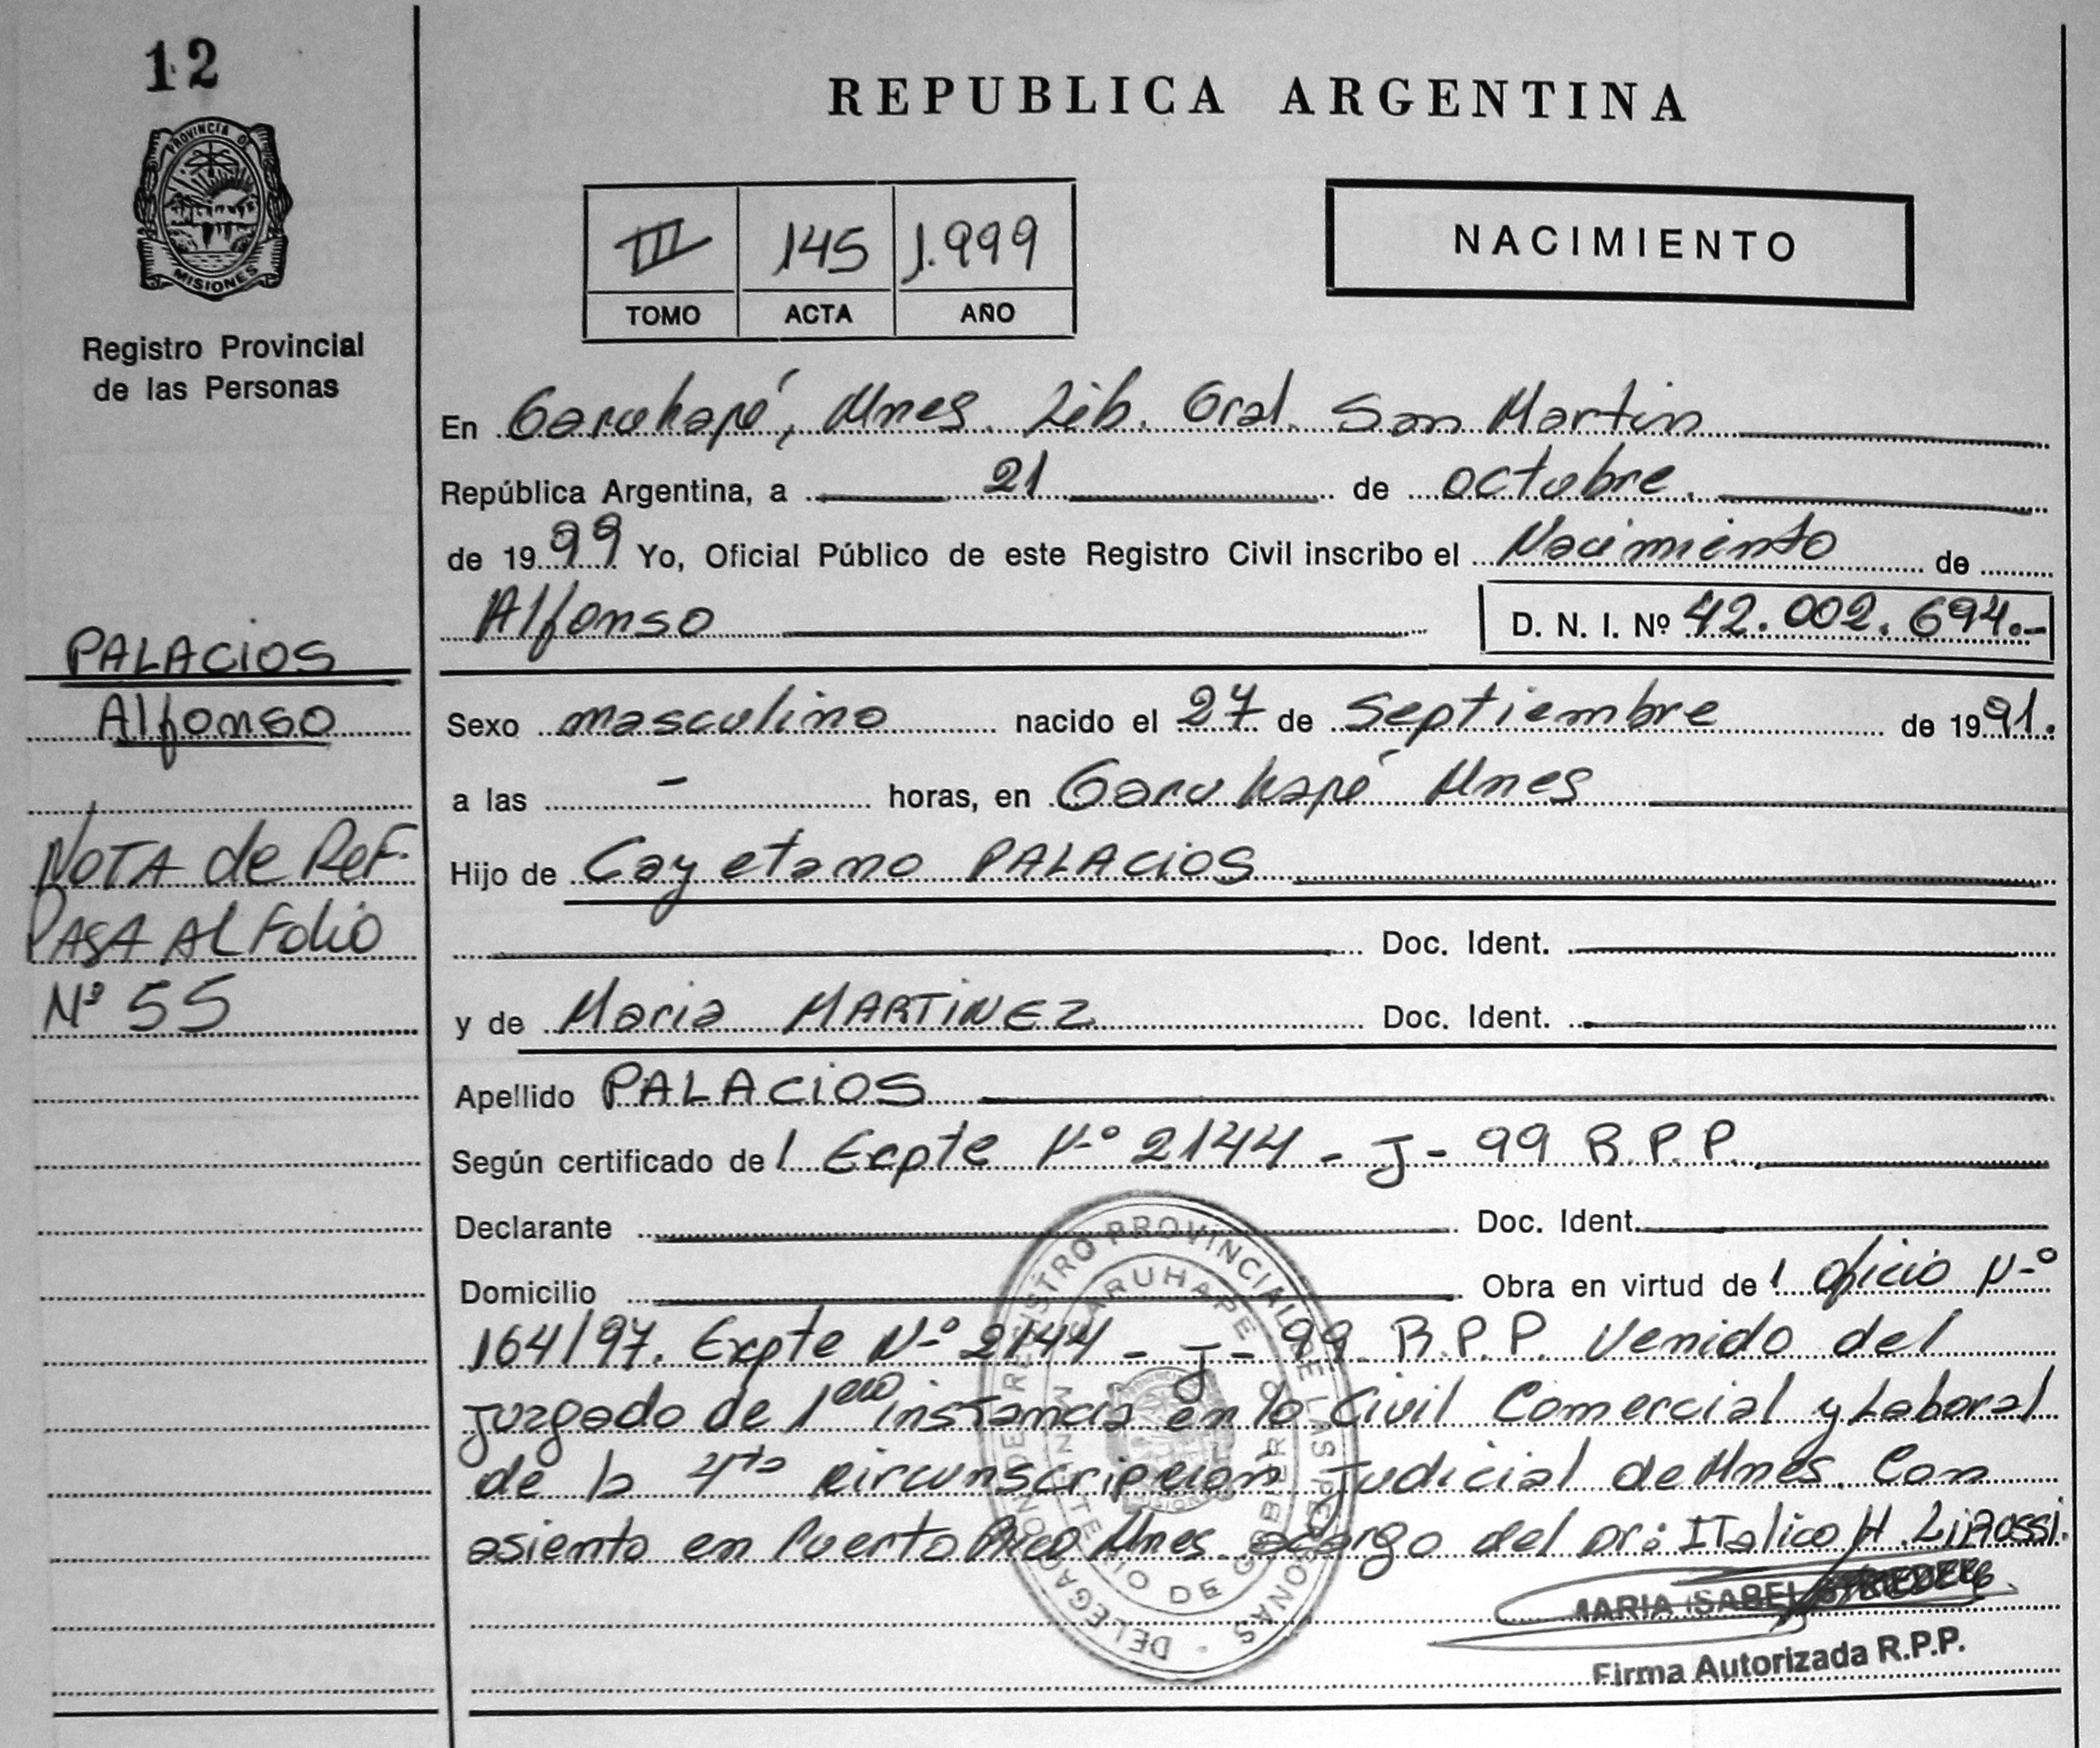 12
PROVINCIA DE
MISIONES
Registro Provincial
de las Personas
REPUBLICA ARGENTINA
III 145 1.999
TOMO ACTA AÑO
NACIMIENTO
En Garuhapé, Mnes. Lib. Gral. San Martin
República Argentina, a 21 de octubre.
de 1999 Yo, Oficial Público de este Registro Civil inscribo el Nacimiento de
Alfonso D. N. I. Nº 42.002.694.-
PALACIOS
Alfonso
NOTA de ReF.
PASA AL Folio
Nº 55
Sexo masculino nacido el 27 de Septiembre de 1991.
a las - horas, en Garuhapé Mnes
Hijo de Cayetano PALACIOS
Doc. Ident.
y de Maria MARTINEZ Doc. Ident.
Apellido PALACIOS
Según certificado de 1 Expte Nº 2144 - J - 99 R.P.P.
Declarante Doc. Ident.
Domicilio Obra en virtud de 1 oficio Nº
164/97. Expte Nº 2144 - J - 99 R.P.P. Venido del
Juzgado de 1era instancia en lo Civil Comercial y Laboral
de la 4ta circunscripción Judicial de Mnes. Con
asiento en Puerto Rico Mnes. acargo del Dr: ITalico H.
MARIA ISABEL
Firma Autorizada R.P.P.
DELEGACION DE REGISTRO PROVINCIAL DE LAS PERSONAS -
GARUHAPE
MINISTERIO DE GOBIERNO